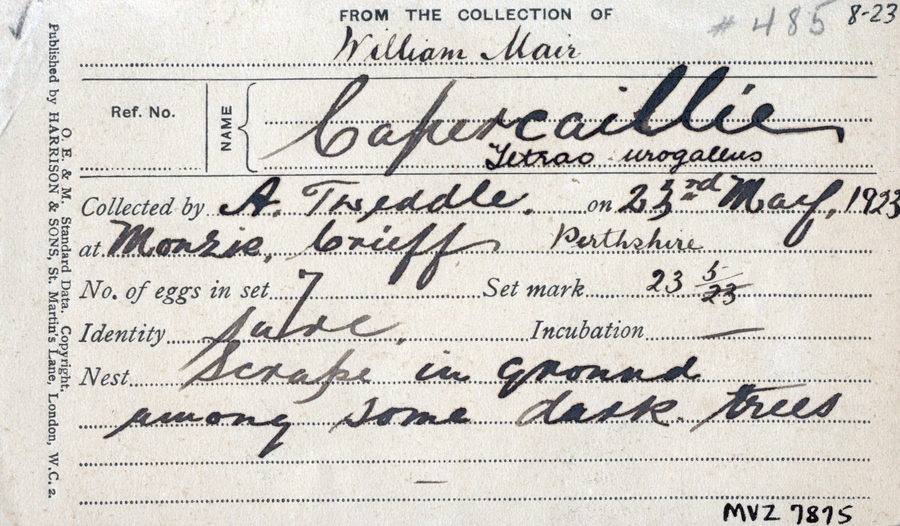 FROM THE COLLECTION OF
# 485
8-23
William Mair
Ref. No.
NAME
Capercaillie
Tetrao urogallus
Collected by A. Tweddle. on 23rd May, 1923
at Monzie, Crieff Perthshire
No. of eggs in set 7 Set mark 23 5/23
Identity sure. Incubation —
Nest Scrape in ground
among some dark trees
—
MVZ 7875
O. E. & M. Standard Data. Copyright.
Published by HARRISON & SONS, St. Martin's Lane, London, W.C. 2.